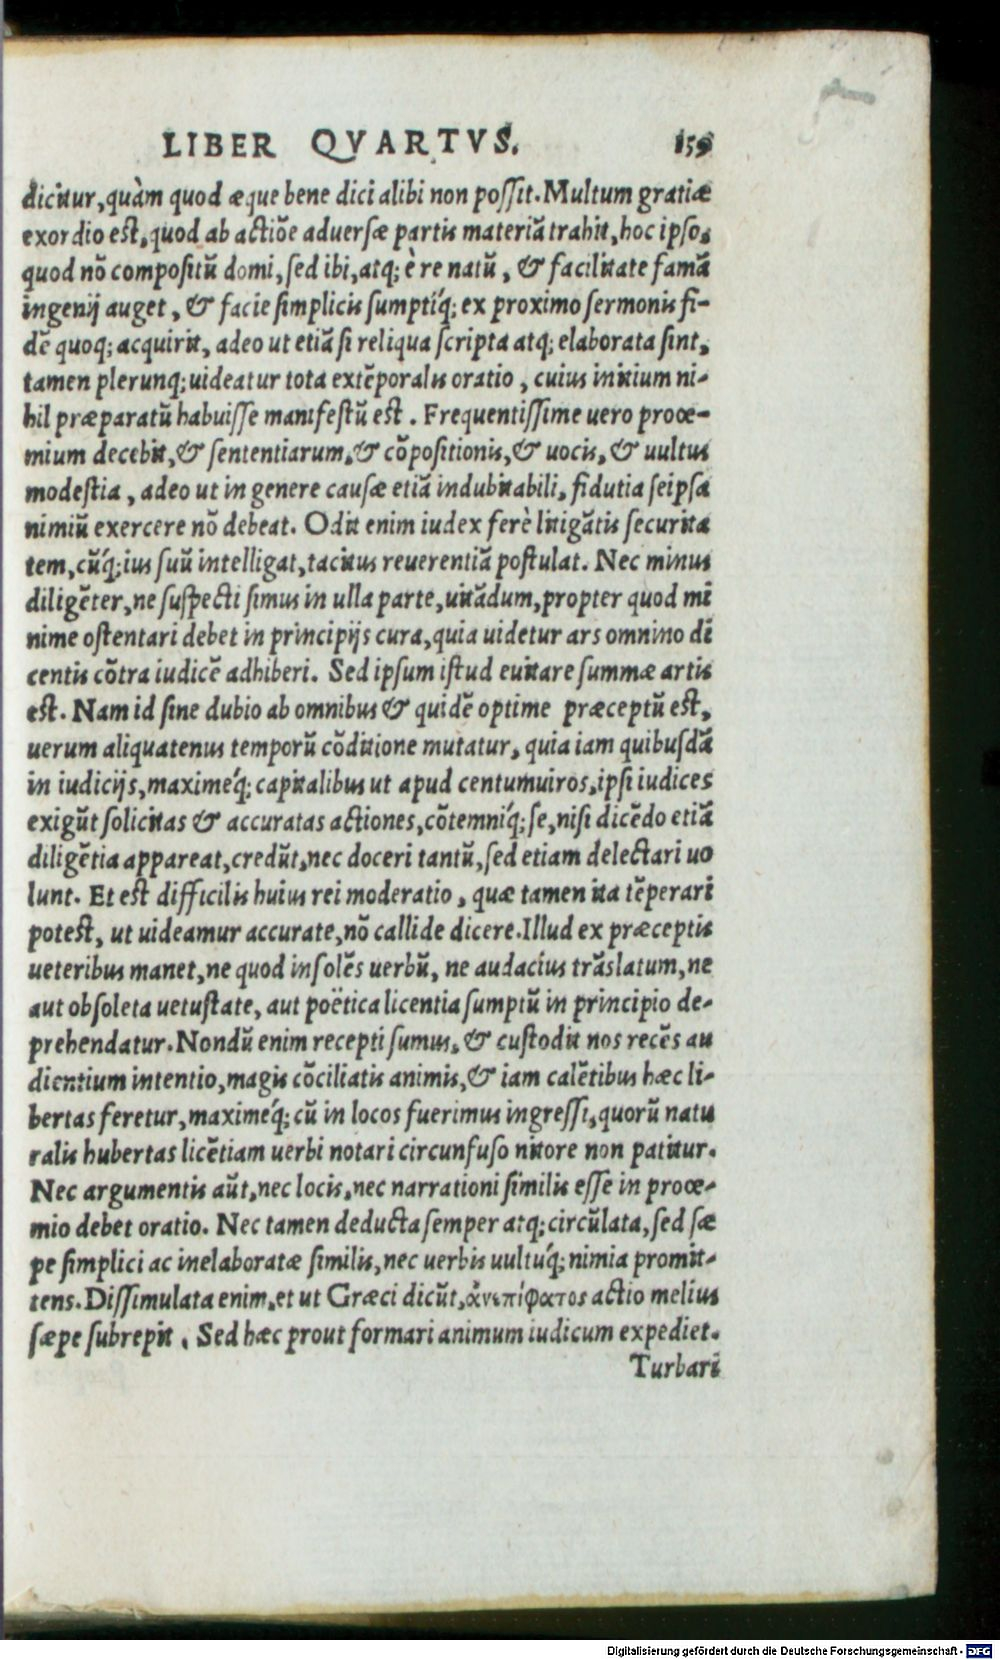 LIBER QVARTVS. 159
dicitur, quàm quod æque bene dici alibi non possit. Multum gratiæ
exordio est, quod ab actiõe aduersæ partis materiã trahit, hoc ipso,
quod nõ compositũ domi, sed ibi, atq; è re natũ, & facilitate famã
ingenij auget, & facie simplicis sumptíq; ex proximo sermonis fi-
dẽ quoq; acquirit, adeo ut etiã si reliqua scripta atq; elaborata sint,
tamen plerunq; uideatur tota extẽporalis oratio, cuius initium ni-
hil præparatũ habuisse manifestũ est. Frequentissime uero proœ-
mium decebit, & sententiarum, & cõpositionis, & uocis, & uultus
modestia, adeo ut in genere causæ etiã indubitabili, fidutia seipsa
nimiũ exercere nõ debeat. Odit enim iudex ferè litigãtis securita
tem, cũq́; ius suũ intelligat, tacitus reuerentiã postulat. Nec minus
diligẽter, ne suspecti simus in ulla parte, uitãdum, propter quod mi
nime ostentari debet in principijs cura, quia uidetur ars omnino di
centis cõtra iudicẽ adhiberi. Sed ipsum istud euitare summæ artis
est. Nam id sine dubio ab omnibus & quidẽ optime præceptũ est,
uerum aliquatenus temporũ cõditione mutatur, quia iam quibusdã
in iudicijs, maximeq́; capitalibus ut apud centumuiros, ipsi iudices
exigũt solicitas & accuratas actiones, cõtemníq; se, nisi dicẽdo etiã
diligẽtia appareat, credũt, nec doceri tantũ, sed etiam delectari uo
lunt. Et est difficilis huius rei moderatio, quæ tamen ita tẽperari
potest, ut uideamur accurate, nõ callide dicere. Illud ex præceptis
ueteribus manet, ne quod insolẽs uerbũ, ne audacius trãslatum, ne
aut obsoleta uetustate, aut poëtica licentia sumptũ in principio de-
prehendatur. Nondũ enim recepti sumus, & custodit nos recẽs au
dientium intentio, magis cõciliatis animis, & iam calẽtibus hæc li-
bertas feretur, maximeq́; cũ in locos fuerimus ingressi, quorũ natu
ralis hubertas licẽtiam uerbi notari circunfuso nitore non patitur.
Nec argumentis aũt, nec locis, nec narrationi similis esse in proœ-
mio debet oratio. Nec tamen deducta semper atq; circũlata, sed sæ
pe simplici ac inelaboratæ similis, nec uerbis uultúq; nimia promit-
tens. Dissimulata enim, et ut Græci dicũt, ἀνεπίφατος actio melius
sæpe subrepit. Sed hæc prout formari animum iudicum expediet.
Turbari
Digitalisierung gefördert durch die Deutsche Forschungsgemeinschaft - DFG